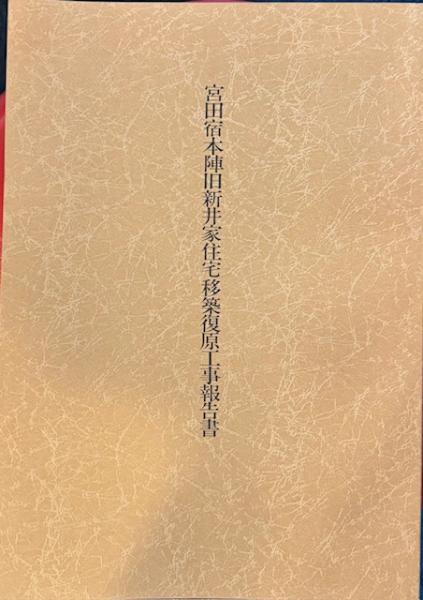 宮田宿本陣旧新井家住宅移築復原工事報告書